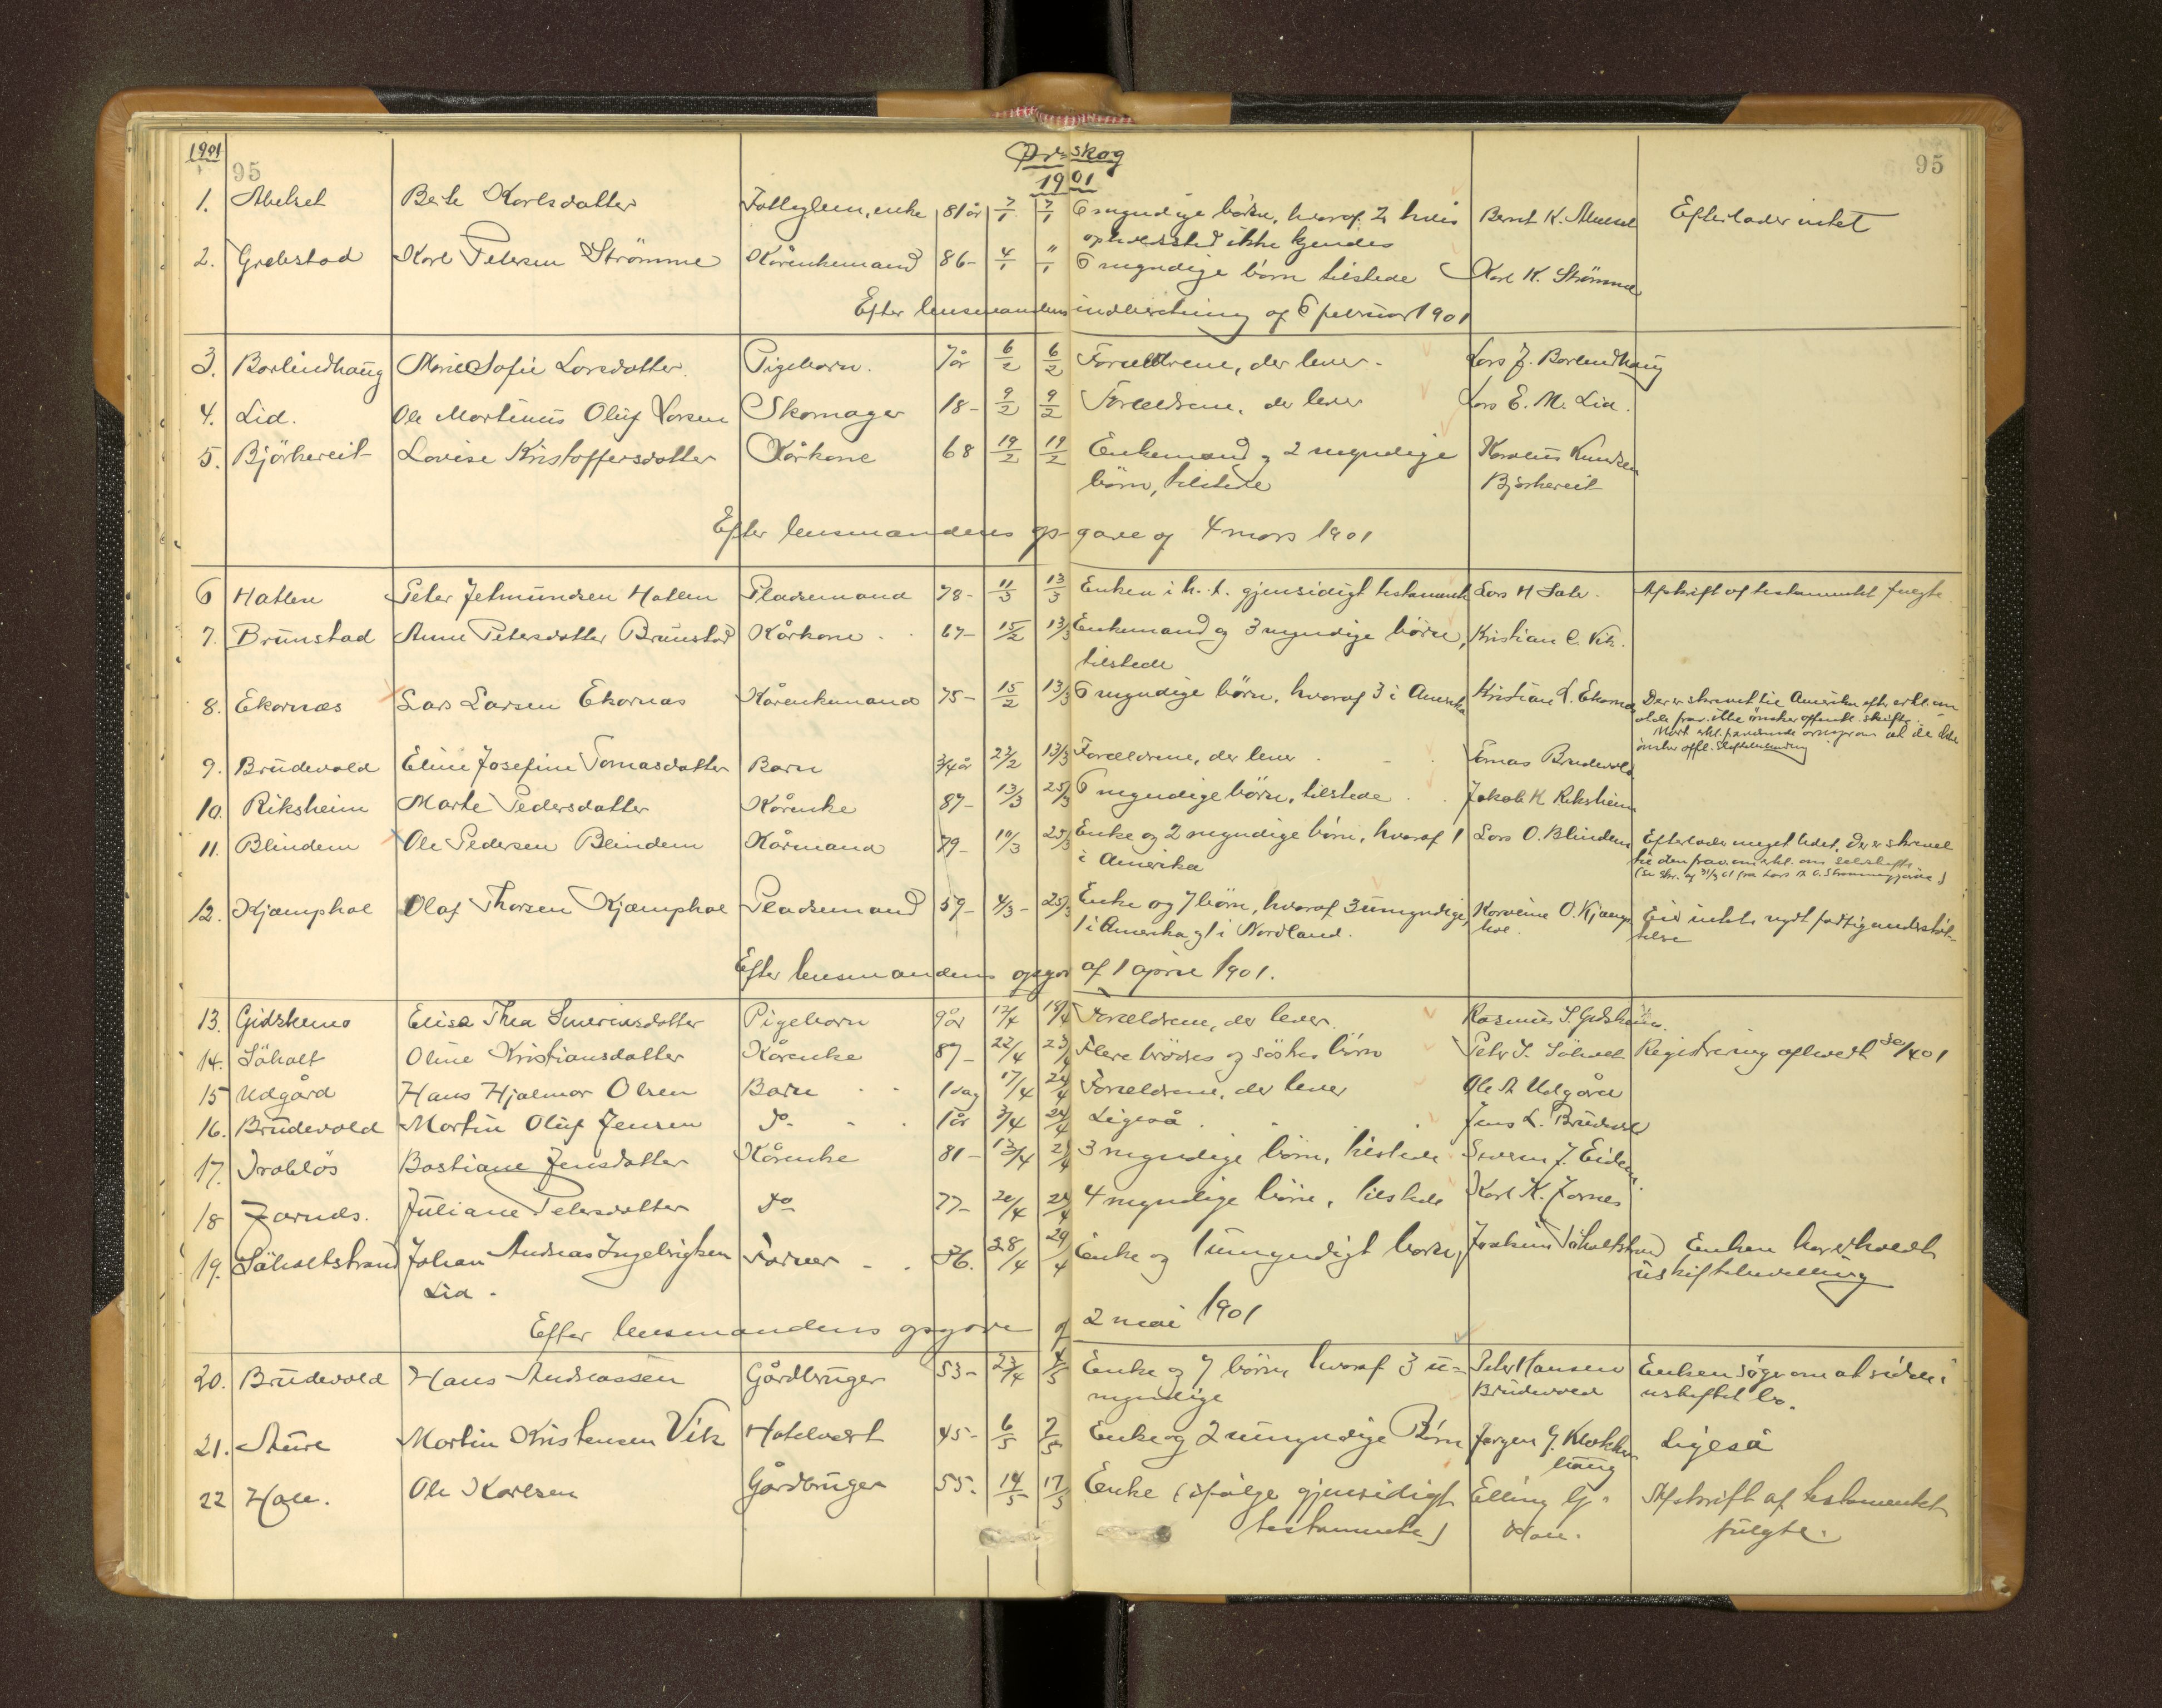 1901
95
Ørskog
1901
95
1. Abelset Berte Karlsdatter Fattiglem, enke 81 år 7/1 7/1 6 myndige börn, hvoraf 2 hvis Bernt K. Abelset Efterlader intet
opholdssted ikke kjendes
2. Grebstad Karl Petersen Strömme Kårenkemand 86- 4/1 "/1 6 myndige börn tilstede Karl K. Strömme
Efter lensmandens indberetning af 6 februar 1901
3. Barlindhaug Marie Sofie Larsdatter Pigebarn. 7 år 6/2 6/2 Forældrene, der lever. Lars J. Barlindhaug
4. Lid. Ole Martinus Oluf Larsen Skomager 18- 9/2 9/2 Forældrene, der lever Lars E. M. Lid.
5. Björkereit Lovise Kristoffersdatter Kårkone 68 19/2 19/2 Enkemand og 2 myndige Karolus Knudsen
börn, tilstede Björkereit
Efter lensmandens opgave af 4 mars 1901
6 Hatlen Peter Jetmundsen Hatlen Pladsemand 78- 11/3 13/3 Enken i h. t. gjensidigt testament Lars H Sate. Afskrift af testamentet fulgte.
7. Brunstad Anne Petersdatter Brunstad Kårkone 67- 15/2 13/3 Enkemand og 3 myndige börn, Kristian C. Vik.
tilstede
8. Ekornæs Lars Larsen Ekornæs Kårenkemand 75- 15/2 13/3 6 myndige börn, hvoraf 3 i Amerika Kristian L. Ekornæs Der er skrevet til Amerika efter erkl. om
at de frav. ikke önsker offentl. skifte.
at de ikke
önsker offl. skiftebehandling
9. Brudevold Eline Josefine Tomasdatter Barn 3/4 år 22/2 13/3 Forældrene, der lever Tomas Brudevold
10. Riksheim Marte Pedersdatter Kårenke 87- 13/3 25/3 6 myndige börn, tilstede Jakob K Riksheim
11. Blindem Ole Pedersen Blindem Kårmand 79- 10/3 25/3 Enke og 2 myndige börn, hvoraf 1 Lars O. Blindem Efterlader meget lidet. Der er skrevet
i Amerika til den frav. om erkl. om selvskifte.
12. Kjæmphol Olaf Thorsen Kjæmphol Pladsemand 59- 4/3- 25/3 Enke og 7 börn, hvoraf 3 umyndige, Karoline O. Kjæmp- Eier intet. nydt fattigunderstöt-
1 i Amerika og 1 i Nordland. hol. telse
Efter lensmandens opgave af 1 april 1901.
13. Gidskemo Elise Thea Severinsdatter Pigebarn 9 år 12/4 18/4 Forældrene, der lever. Rasmus S. Gidskemo.
14. Söholt Oline Kristiansdatter Kårenke 87- 22/4 23/4 Flere bröders og söstres börn Peter I. Söholt Registrering afholdt 30/4 01
15 Udgård Hans Hjalmar Olsen Barn 1 dag 17/4 24/4 Forældrene, der lever Ole A Udgård
16. Brudevold Martin Oluf Jensen Do- 1 år 3/4 24/4 Ligeså Jens L. Brudevold
17. Drabløs Bastiane Jensdatter Kårenke 81- 13/4 24/4 3 myndige börn, tilstede Severin J. Eidem.
18 Jarnæs. Juliane Petersdatter Do 77- 20/4 24/4 4 myndige börn, tilstede Karl K. Jarnes
19. Söholtstrand Johan Andreas Ingebrigtsen Farver 36. 28/4 29/4 Enke og 1 umyndigt barn, Joakim Söholtstrand Enken har erholdt
Lid. uskiftebevilling
Efter lensmandens opgave af 2 mai 1901
20. Brudevold Hans Andreassen Gårdbruger 53- 23/4 4/5 Enke og 7 börn hvoraf 3 u- Peter Hansen Enken söger om at sidde i
myndige Brudevold uskiftet bo.
21. Aure Martin Kristensen Vik Hotelvært 45- 6/5 7/5 Enke og 2 umyndige Börn Jørgen G. Klokker- Ligeså
haug
22 Hole. Ole Karlsen Gårdbruger 55- 14/5 17/5 Enke (ifølge gjensidigt Elling G. Afskrift af testamentet
testamente) Hole. fulgte.